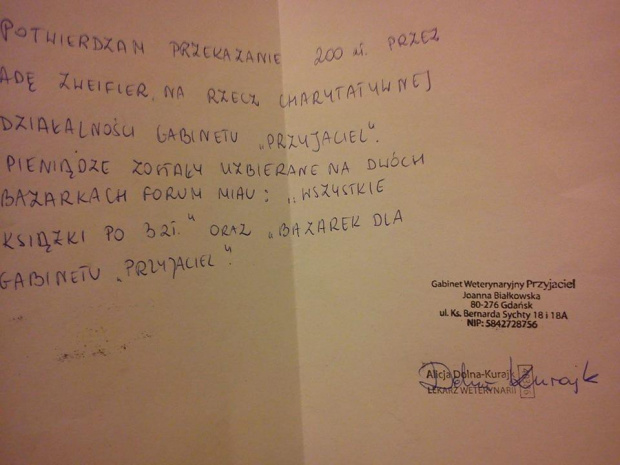 POTWIERDZAM PRZEKAZANIE 200 zł. PRZEZ
ADĘ ZWEIFIER, NA RZECZ CHARYTATYWNEJ
DZIAŁALNOŚCI GABINETU „PRZYJACIEL".
PIENIĄDZE ZOSTAŁY UZBIERANE NA DWÓCH
BAZARKACH FORUM MIAU: „WSZYSTKIE
KSIĄŻKI PO 3 ZŁ." ORAZ „BAZAREK DLA
GABINETU „PRZYJACIEL".
Gabinet Weterynaryjny Przyjaciel
Joanna Białkowska
80-276 Gdańsk
ul. Ks. Bernarda Sychty 18 i 18A
NIP: 5842728756
Alicja Dolna-Kurajk
LEKARZ WETERYNARII
Dolna Kurajk